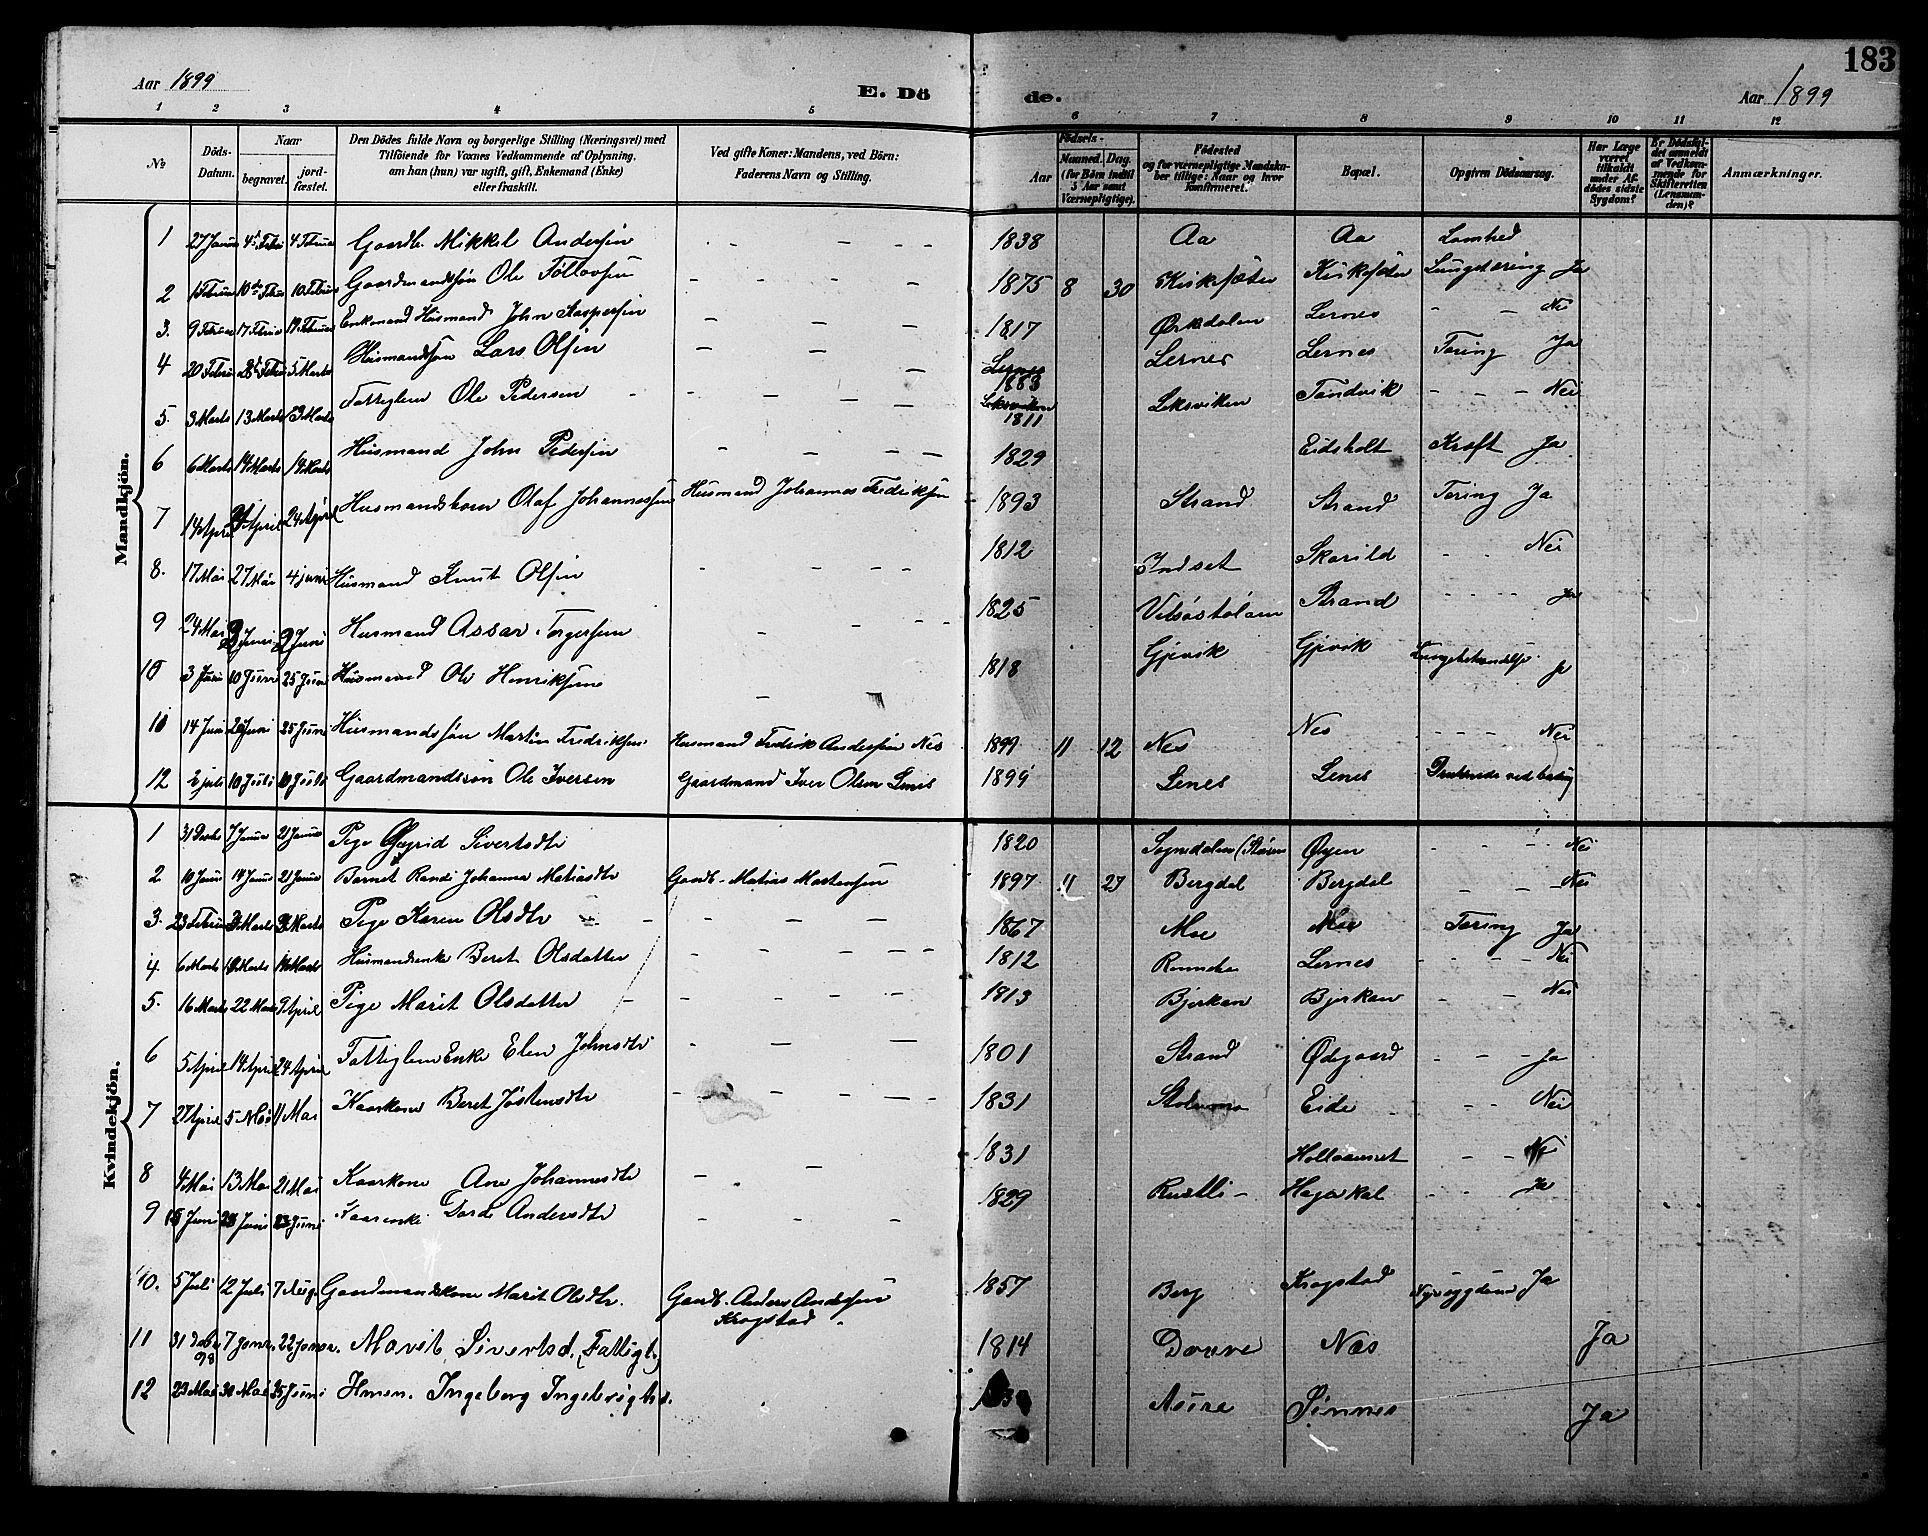 183
Aar 1899
E. Dö de.
Aar 1899
1 2 3 4 5 6 7 8 9 10 11 12
No
Döds-Datum.
Naar
begravet.
jord-fæstet.
Den Dödes fulde Navn og borgerlige Stilling (Næringsvei) med
Tilföiende for Voxnes Vedkommende af Oplysning,
om han (hun) var ugift, gift, Enkemand (Enke)
eller fraskilt.
Ved gifte Koner: Mandens, ved Börn:
Faderens Navn og Stilling.
Födsels-
Aar
Maaned. Dag.
(for Börn indtil 5 Aar samt Værnepligtige).
Födested
og for værnepligtige Mandska-
ber tillige: Naar og hvor
konfirmeret.
Bopæl.
Opgiven Dödsaarsag.
Har Læge været tilkaldt under Afdödes sidste Sygdom?
Er Dödsfaldet anmeldt af Vedkommende for Skifteretten (Lensmanden)?
Anmærkninger.
Mandkjön.
1 27 Janua 4 Febru 4 Februa Gaardb. Mikkel Andersen - - - 1838 Aa Aa Lamhed
2 Februa 10de Febru 10 Februa Gaardmandssøn Ole - - - - 1875 8 30 Kirksæter Kirksæter Ja
3. 9 Februa 17 Februa 19 Februa Enkemand Husmand John - - - 1817 Ørkedalen Lernes - - Nei
4 20 Febru 28 Febru 5 Marts Husmandssøn Lars Olsen - - - Lernes 1883 Lernes Lernes Tæring Ja
5. 3 Marts 13 Marts 19 Marts Fattiglem Ole Pedersen - - - - Leksviken 1811 Leksviken Tandvik - - - Nei
6 6 Marts 14 Marts 19 Marts Husmand John Pedersen - - - - 1829 Eidsholt Kræft Ja
7 14 April 24 April 24 April Husmandsbarn Olaf Johannessen Husmand Johannes Fredriksen 1893 Strand Strand Tæring Ja
8. 17 Mai 27 Mai 4 juni Husmand Knut Olsen - - - - 1812 Indset Skarild - - Nei
9 24 Mai 2 Juni 2 Juni Husmand Assar Torgersen - - - 1825 Strand - - - - Ja
10 3 Juni 10 Juni 25 Juni Husmand Ole Henriksen - 1818 Gjevik Gjevik Ja
11 14 Juni 20 Juni 25 Juni Husmandssøn Martin Fredriksen Husmand Fredrik Andersen Nes 1899 11 12 Nes Nes - - - - Nei
12 2 juli 10 Juli 10 Juli Gaardmandssøn Ole Iversen Gaardmand Iver Olsen Lenes 1899 Lenes Lenes
Kvindekjön.
1 31 Decbr 7 Janua 21 Janua Pige Sivertsdtr 1820 Sognedalen (Støren Øyen - - - - Nei
2 10 Janu 14 Janu 21 Janua Barnet Randi Johanna Matiasdtr Gaardb. Matias Mortensen 1897 11 27 Bergdal Bergdal - - - Nei
3. 23 Februa Marts Marts Pige Karen Olsdtr - - - - 1867 Moe Moe Tæring Ja
4 6 Marts Marts 19 Marts Husmandsenke Beret Olsdatter - - - - - 1812 Lernes - - - - Nei
5. 16 Marts 22 Marts 9 April Pige Marit Olsdatter - - - - - 1813 Bjerkan Bjerkan - - Nei
6 5 April 14 April 24 April Fattiglem Enke Elen Johnsdtr - - - - 1801 Strand Ødegaard - - - Ja
7 27 April 5 Mai 11 Mai Kaarkone Beret Jøstensdtr - - - - - 1831 Eide - - - Nei
8 4 Mai 13 Mai 21 Mai Kaarkone Ane Johannesdtr - - 1831 - - Nei
9 15 Juni Juni Juni Kaarenke Dordi Andersdtr - - - - 1829 Rustli - - - Ja
10. 5 Juli 12 Juli 7 Aug. Gaardmandskone Marit Olsdtr. Gaardb. Anders Andersen 1857 Berg Krogstad Ja
Krogstad
11 31 Decbr 98 7 Janr. 22 Janr. Marit Sivertsd. (Fattigl.) 1814 Dovre Næs Ja
12 23 Mai 30 Mai 25 Juni Hmen. Ingeborg Ingebrigtsd. Asure Sinnes Ja